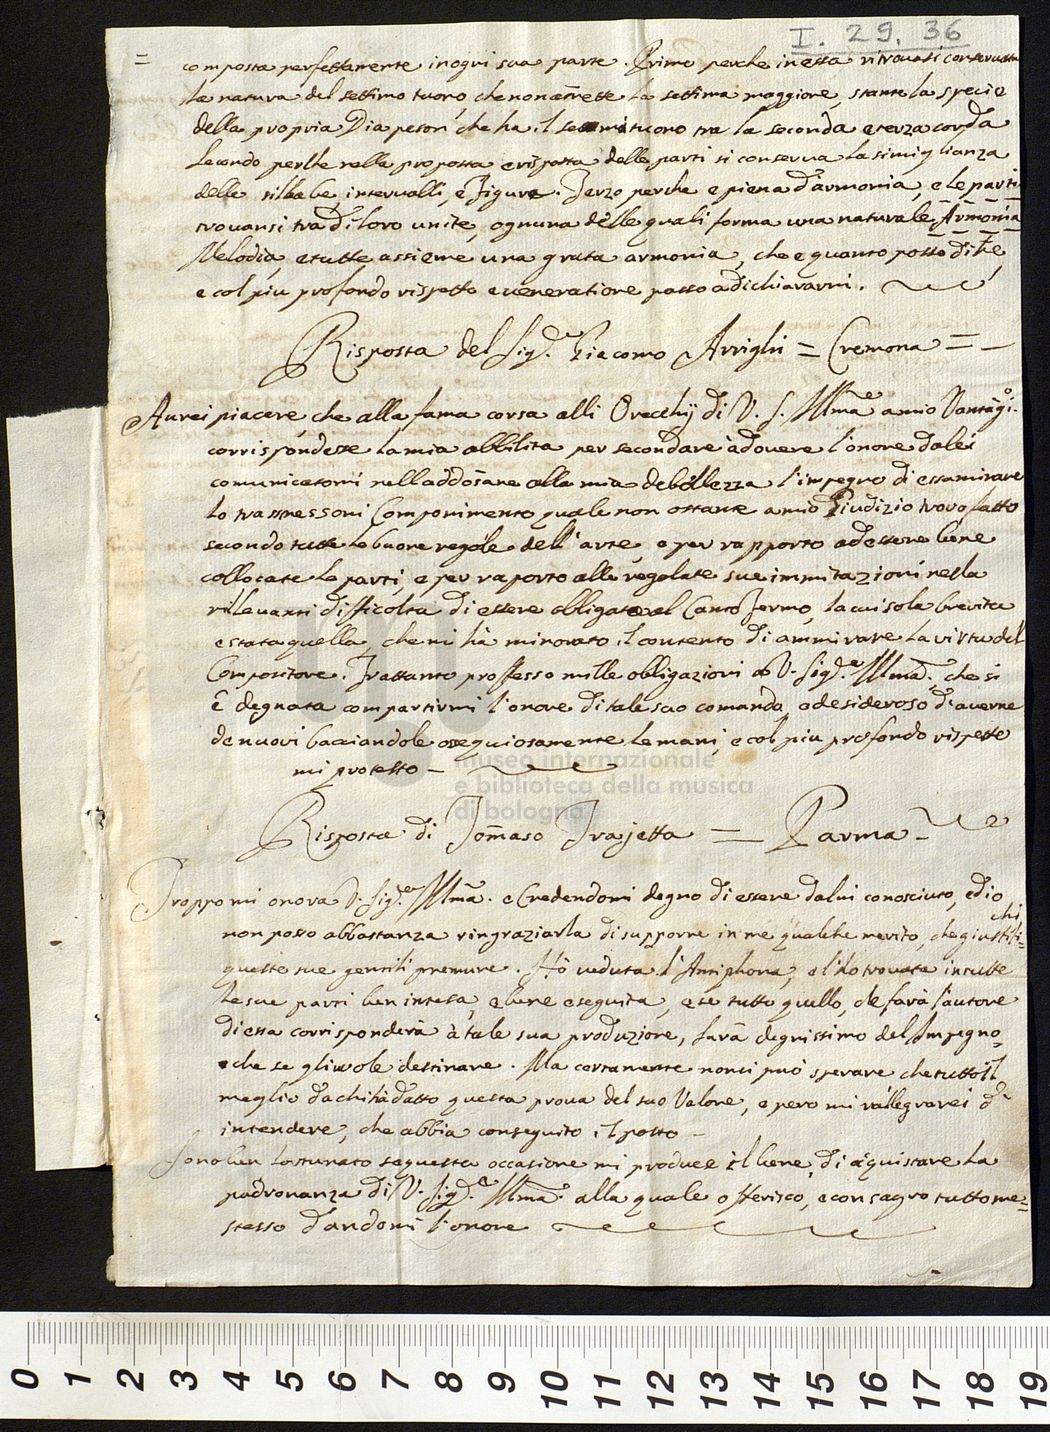 I. 29. 36
= composta perfettamente in ogni sua parte. Primo perche in essa ritrovasi conservata
la natura del settimo tuono, che non am̃ette la settima maggiore, stante la specie
della propria Diapeson che ha il semmituono tra la seconda e terza corda
Secondo perche nella proposta e risposta delle parti si conserva la simiglianza
delle sillabe, intervalli, e figure. Terzo perche e piena d'armonia, e le parti
trovansi tra di loro unite, ognuna delle quali forma una naturale Armonia
Melodia, e tutte assieme una grata armonia, che e quanto posso dirle,
e col piu profondo rispetto e veneratione passo a dichiararmi.
Risposta del Sig.r Giacomo Arrighi = Cremona = -
Aurei piacere, che alla fama corsa alli Orecchij di V. S. Illma a mio Vantagio.
corrispondesse la mia abbilita per secondare à dovere l'onore da lei
comunicatomi nell'addossare alla mia debollezza l'impegno di essaminare
lo trasmessomi Componimento quale non ostante a mio Giudizio trovo fatto
secondo tutte le buone regole dell'arte, e per rapporto ad essere bene
collocate le parti, e per raporto alle regolate sue immitazioni nella
rilevanti difficolta di essere obligate al Canto fermo, la cui sola brevita
e stata quella, che mi hà minorato il contento di ammirare la virtu del
Compositore. Frattanto professo mille obligazioni a V. Sig.a Illma. che si
è degnata compartirmi l'onore di tale suo comando, e desideroso di averne
de nuovi bacciandole ossequiosamente le mani, e col piu profondo rispetto
mi protesto -
Risposta di Tom̃aso Trajetta = Parma -
Troppo mi onora V. Sig.a Illma. e Credendomi degno di essere da lui conosciuto, ed io
non posso abbastanza ringraziarla di supporre in me qualche merito, che giustifi=
chi
queste sue gentili premure. Hò veduta l'Antiphona, e l'ho trovata in tutte
le sue parti ben intesa, e bene eseguita, e se tutto quello, che farà l'autore
di essa corrisponderà à tale sua produzione, sarà degnissimo del Impegno=
che se gli vuole destinare. Ma certamente non si può sperare che tutto il
meglio da chi hà datto questa prova del suo Valore, e pero mi rallegrarei d'
intendere, che abbia conseguito il posto -
Sono ben fortunato se questa occasione mi produce il bene di aquistare la
padronanza di V. Sig.a Illma. alla quale offerisco, e consagro tutto me=
stesso dandomi l'onore
museo internazionale
e biblioteca della musica
di bologna
0 1 2 3 4 5 6 7 8 9 10 11 12 13 14 15 16 17 18 19